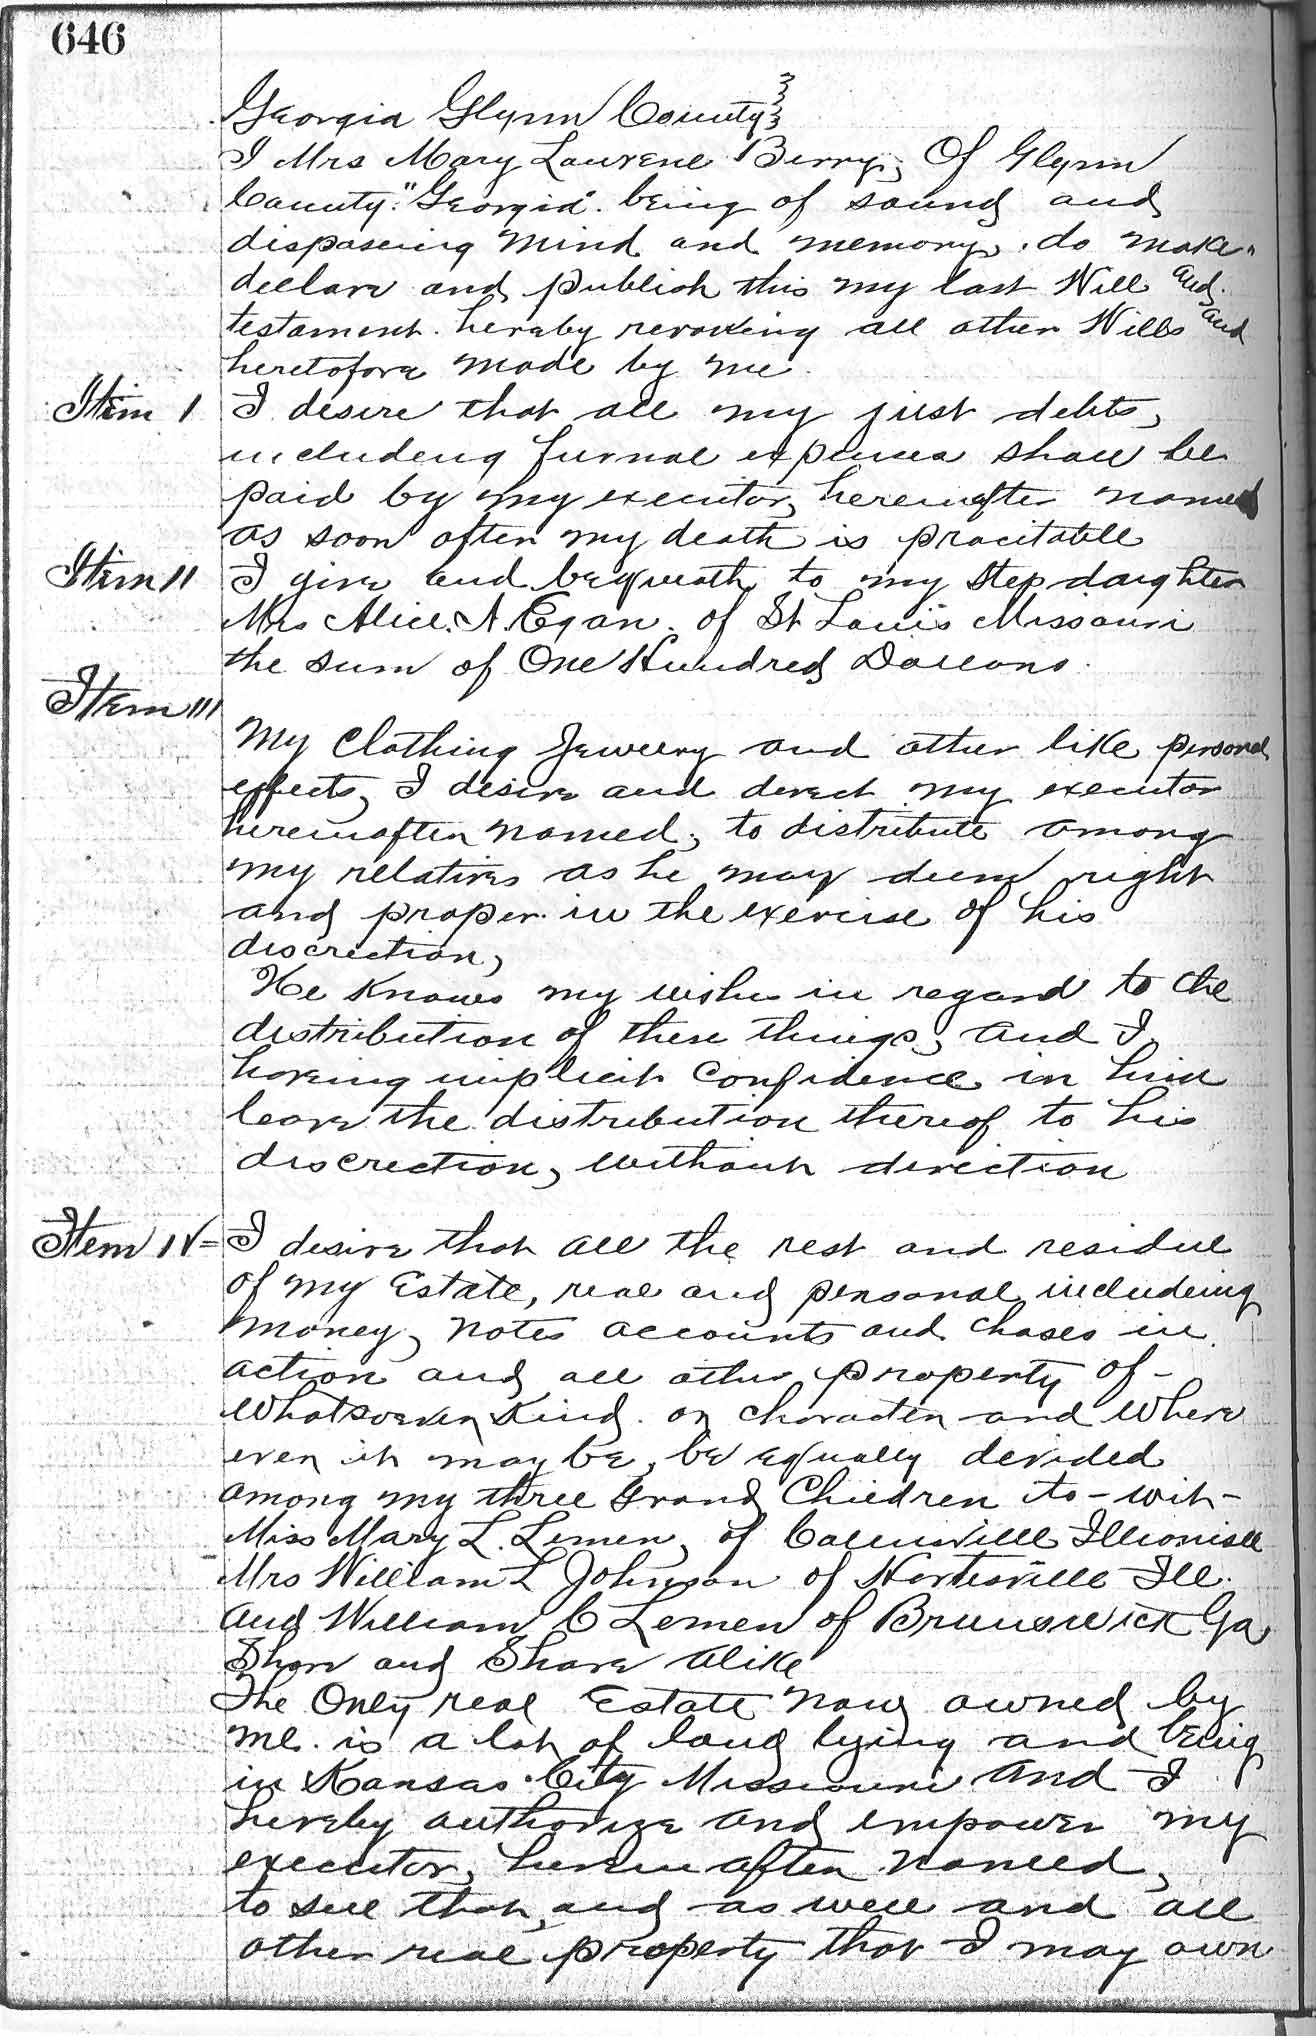 646
Georgia Glynn County
I Mrs Mary Laurene Berry, Of Glynn
County. "Georgia". being of sound and
disposeing mind and memory, do make
declare and publish this my last Will and
testament. hereby revokeing all other Wills and
heretofore made by me.
Item I I desire that all my just debts,
includeing furnal expences shall be
paid by my executor, hereinafter named
as soon after my death is pracitable
Item II I give and bequeath to my Step daughter
Mrs Alice. N. Egan. of St Louis Missouri
the sum of One Hundred Dollars.
Item III
My Clothing Jewelry and other like personal
effects, I desire and direct my executor
hereinafter named, to distribute among
my relatives as he may deem right
and proper in the exercise of his
discrection,
He Knows my wishes in regard to the
distribution of these things, and I
haveing implicit Confidence in him
leave the distribution thereof to his
discrection, without direction
Item IV = I desire that all the rest and residue
of my Estate, real and personal includeing
money, notes accounts and choses in
action and all other property of -
Whatsoever Kind. or character and Where
ever it may be, be equally devided
among my three Grand Children to - wit -
Miss Mary L. Lemen, of Collinsville
Mrs William L Johnson of Ill.
and William C Lemen of Brunswick Ga,
Share and Share alike
The Only real Estate now owned by
me. is a lot of land lying and being
in Kansas City Missouri and I
hereby authorize and empower my
executor, herein after named,
to sell that, and as well and all
other real property that I may own